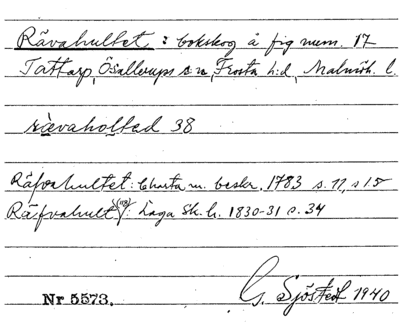 Rävahultet : bokskog å fig num. 17
Tattarp, Ösallerups sn, Frosta h:d, Malmöh. l.
rävaholtad 38
Räfvahultet: Charta m. beskr. 1783 s. 11, s 15
Räfvahult: Laga Sk. h. 1830-31 s. 34
Nr 5573. G. Sjöstedt 1940